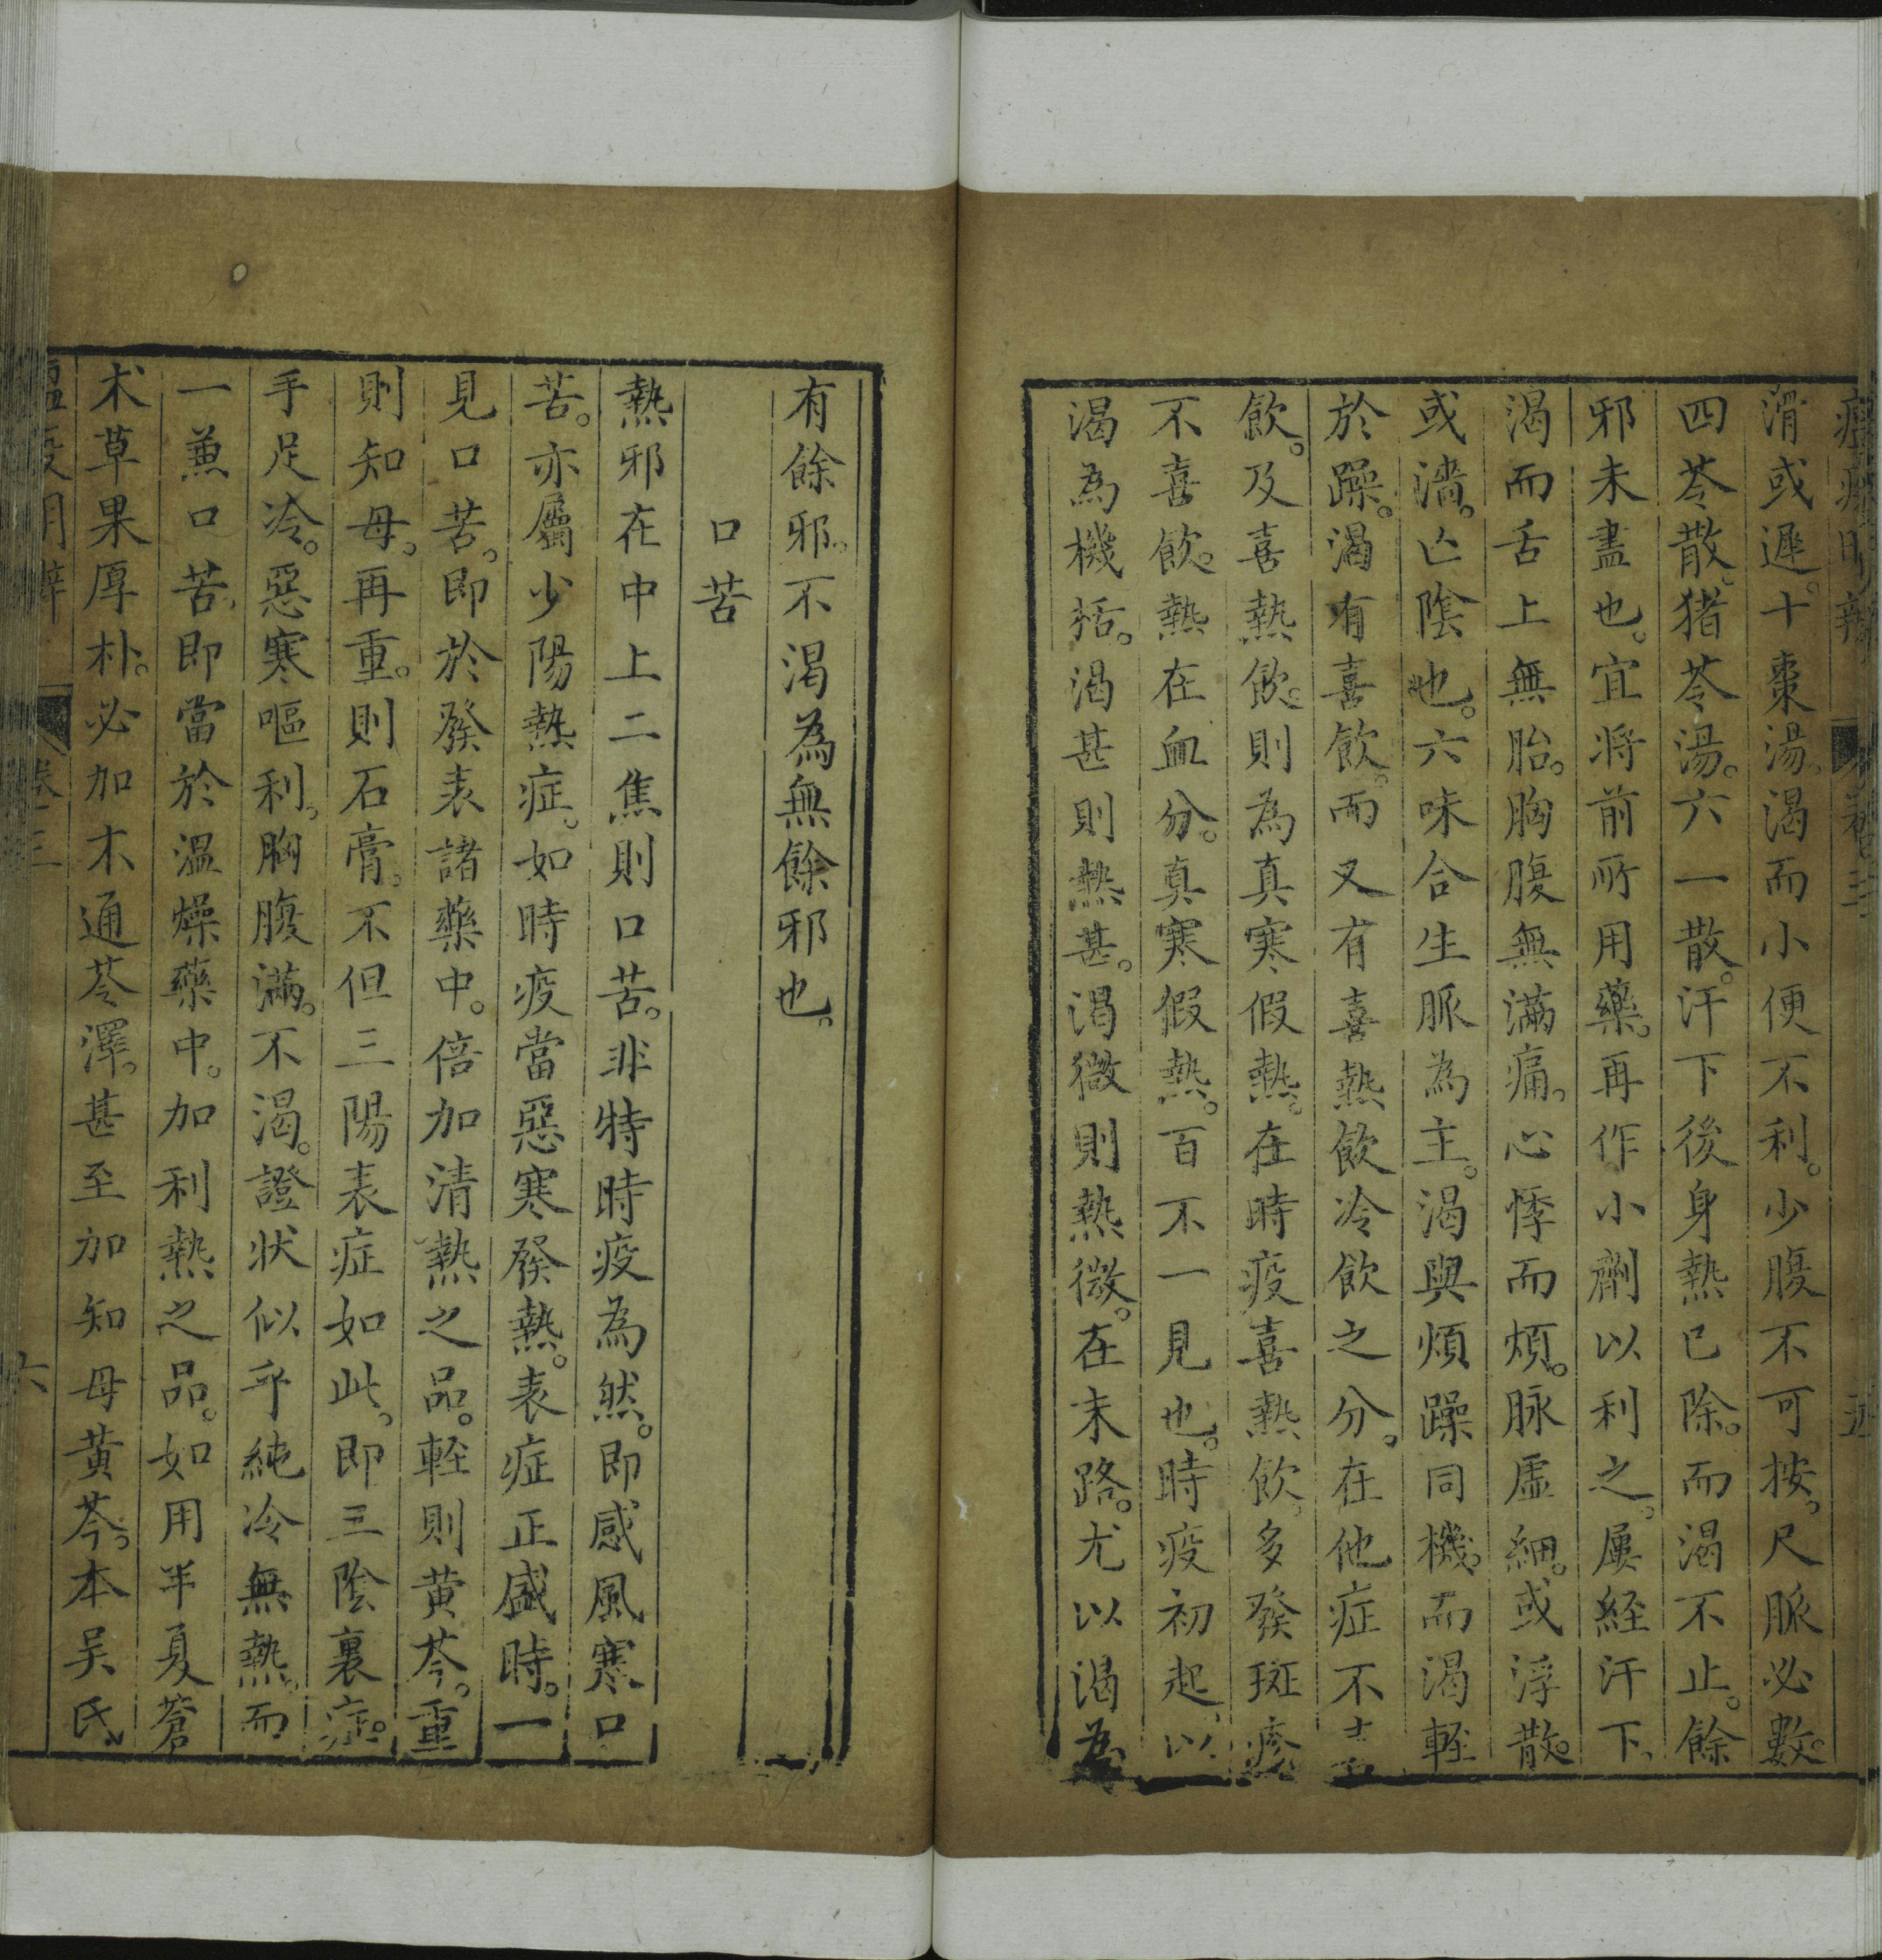 滑或遲。十棗湯。渴而小便不利。少腹不可按。尺脈必數。
四苓散。猪苓湯。六一散。汗下後身熱已除。而渴不止。餘
邪未盡也。宜將前所用藥。再作小劑以利之。屢經汗下。
渴而舌上無胎。胸腹無滿痛。心悸而煩。脉虛細。或浮散。
或濇。亡陰也。六味合生脈為主。渴與煩躁同機。而渴輕
於躁。渴有喜飲。而又有喜熱飲冷飲之分。在他症不喜
飲。及喜熱飲。則為真寒假熱。在時疫喜熱飲。多發斑疹
不喜飲。熱在血分。真寒假熱。百不一見也。時疫初起。以
渴為機括。渴甚則熱甚。渴微則熱微。在末路。尤以渴為
有餘邪。不渴為無餘邪也。
口苦
熱邪在中上二焦則口苦。非特時疫為然。即感風寒口
苦。亦屬少陽熱症。如時疫當惡寒發熱。表症正盛時。一
見口苦。即於發表諸藥中。倍加清熱之品。輕則黃芩。重
則知母。再重。則石膏。不但三陽表症如此。即三陰裏症。
手足冷。惡寒嘔利。胸腹滿。不渴。證狀似乎純冷無熱。而
一兼口苦。即當於溫燥藥中。加利熱之品。如用半夏蒼
术草果厚朴。必加木通苓澤。甚至加知母黃芩。本吳氏
卷三
六